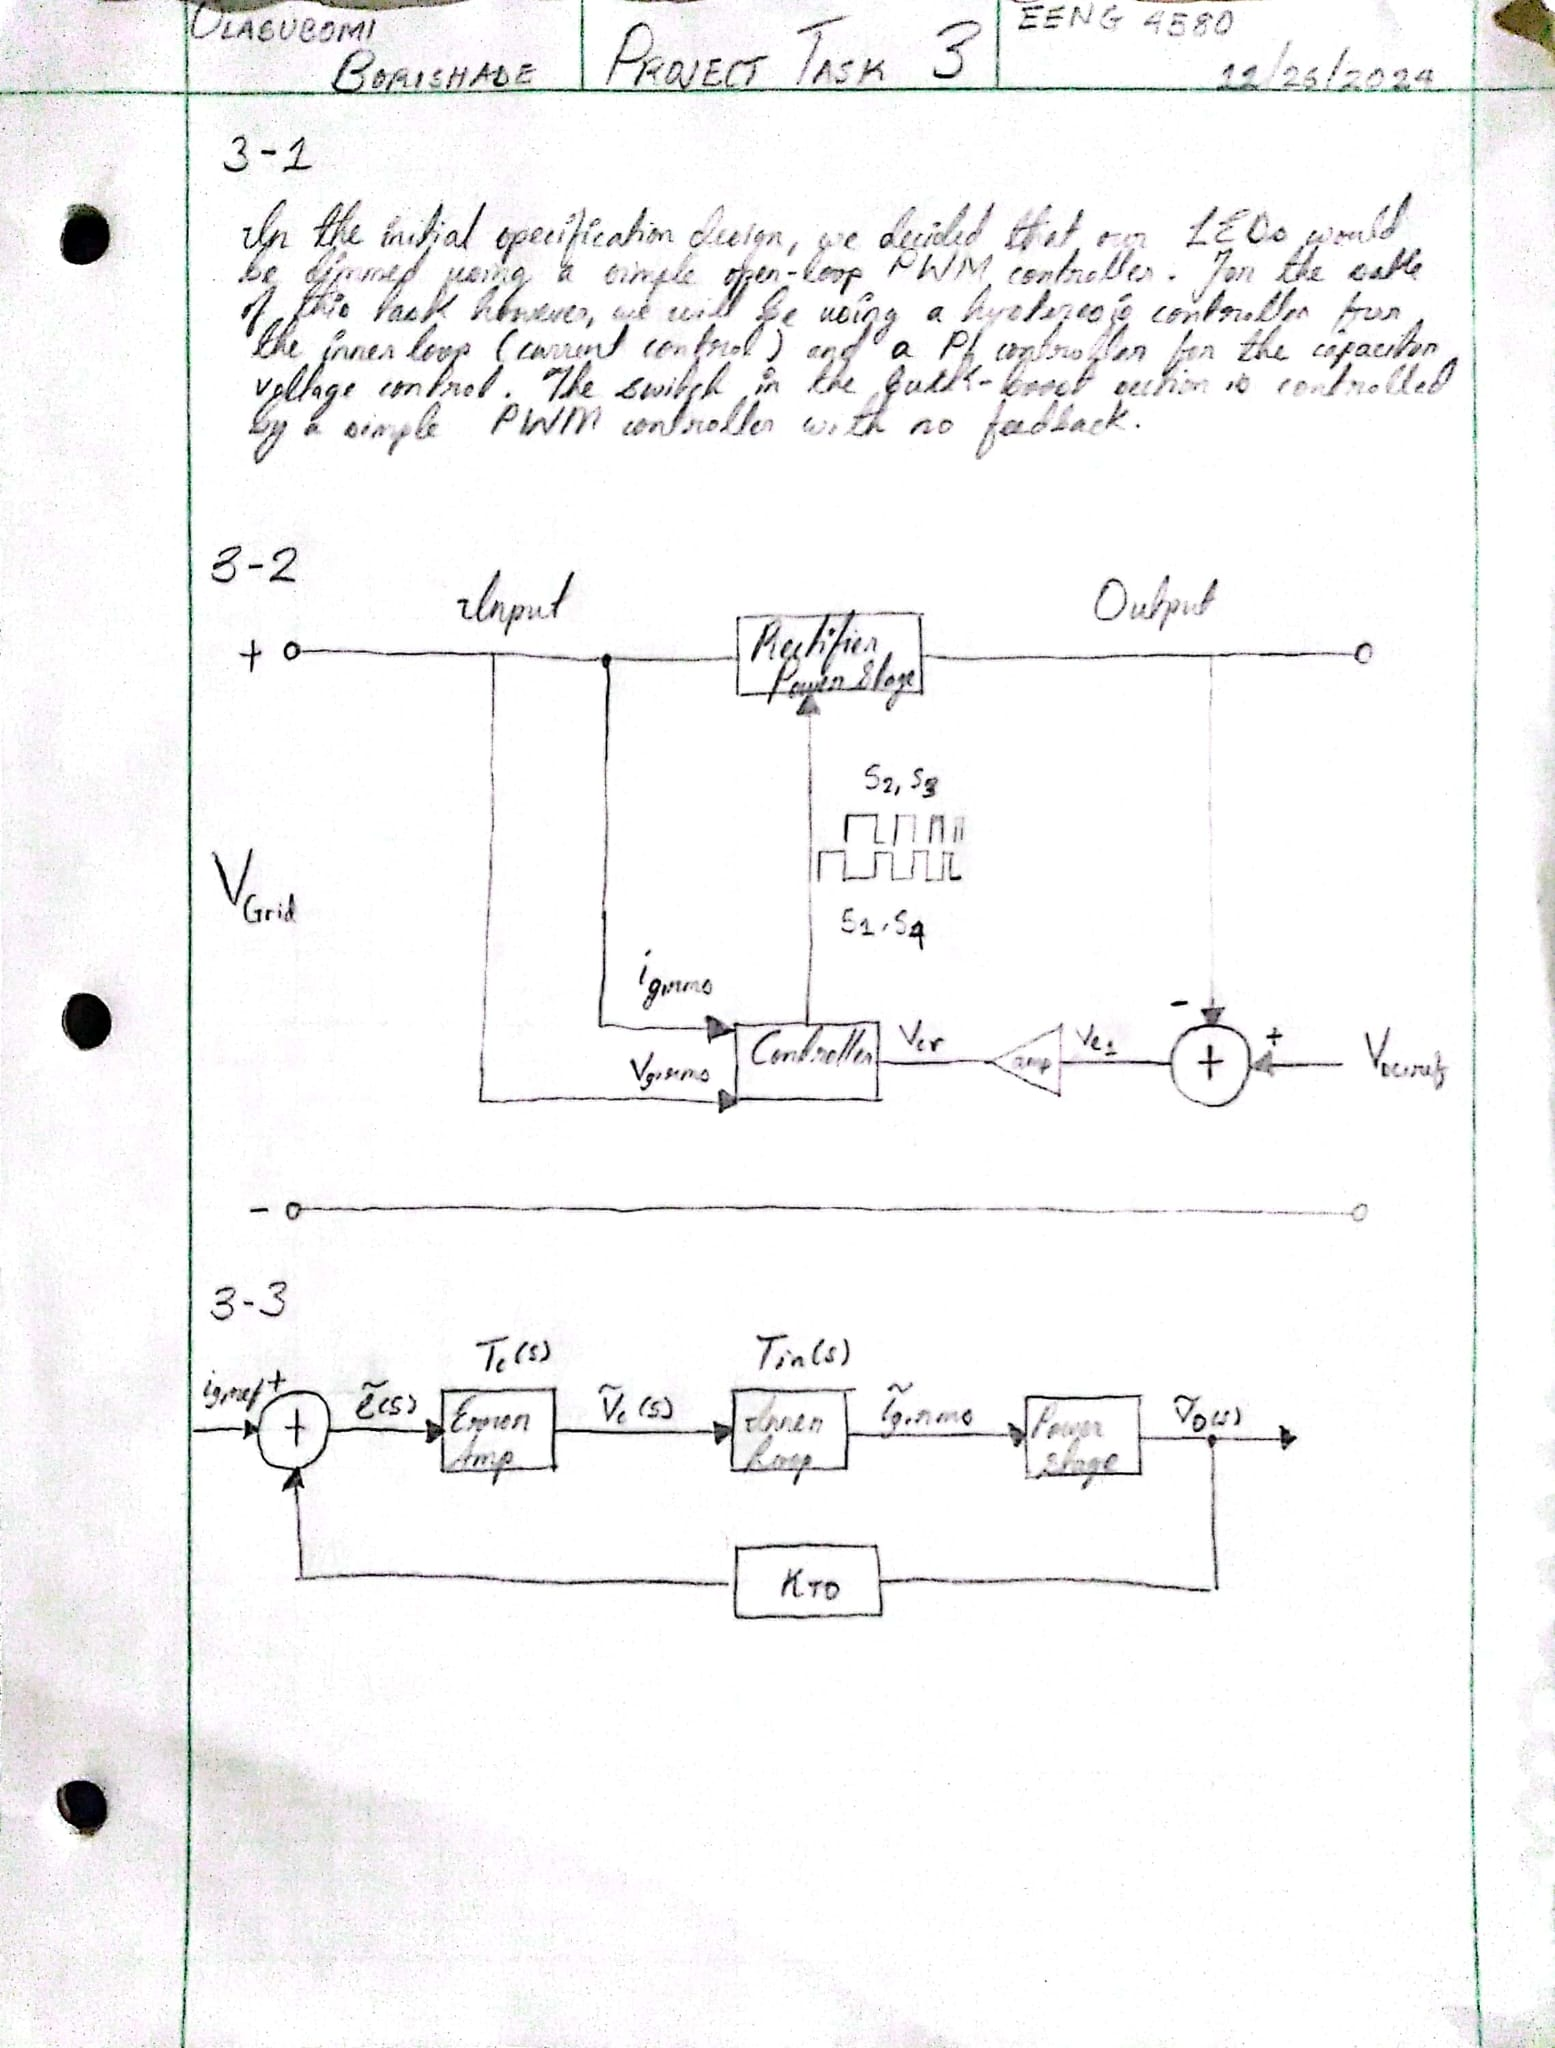 OLABUBOMI
BORISHADE
PROJECT TASK 3
EENG 4580
3-1
In the initial specification design, we decided that our LEDs would
be dimmed using a simple open-loop PWM controller. For the sake
of this task however, we will be using a hysteresis controller for
the inner loop (current control) and a PI controller for the capacitor
voltage control. The switch in the buck-boost section is controlled
by a simple PWM controller with no feedback.
3-2
Input
Output
+
Rectifier
Power Stage
S2, S3
VGrid
S1, S4
ig,rms
-
Controller
Vcr
amp
Ve1
+
+
VDC,ref
vg,rms
-
3-3
Tc(s)
Tin(s)
ig,ref
+
+
ẽ(s)
Error
Amp
ṽc(s)
Inner
Loop
ĩg,rms
Power
Stage
ṽo(s)
KTO